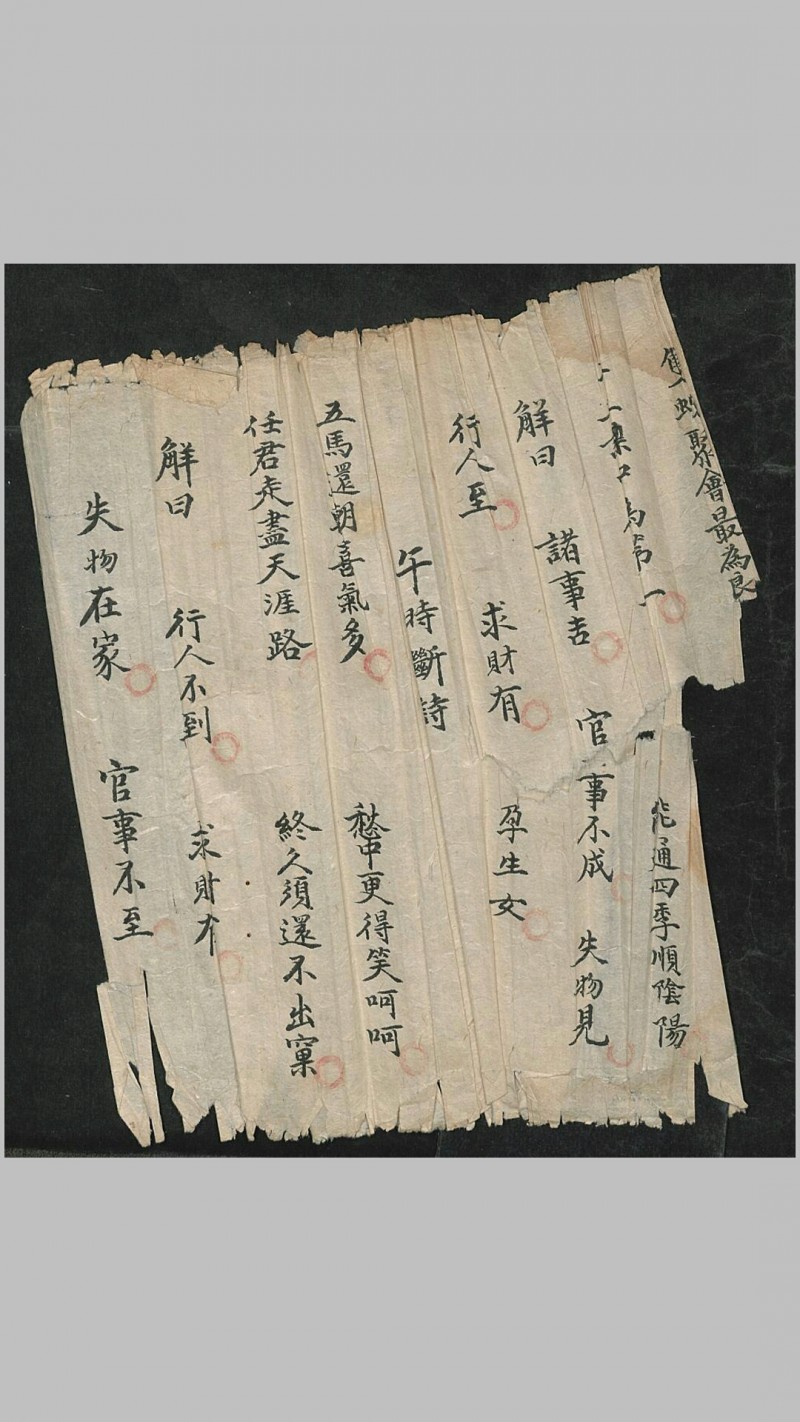 聚會最為良
一 為第一 能通四季順陰陽
解曰 諸事吉 官事不成 失物見
行人至 求財有 孕生女
午時斷詩
五馬還朝喜氣多 愁中更得笑呵呵
任君走盡天涯路 終久須還不出窠
解曰 行人不到 求財有
失物在家 官事不至